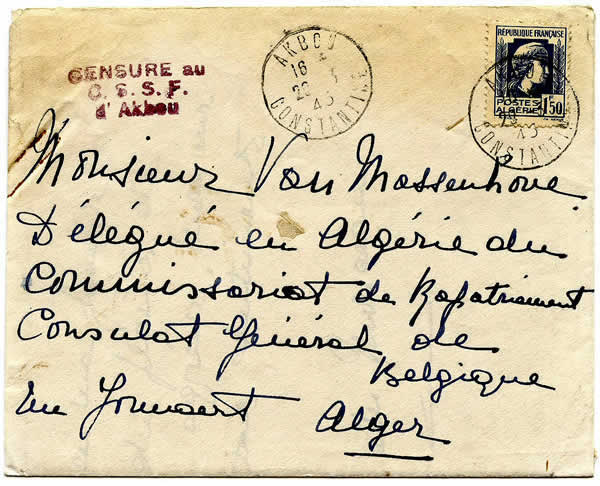 CENSURE au
C. S. S. F.
d'Akbou
AKBOU
16 4
26 - 5
45
CONSTANTINE
RÉPUBLIQUE FRANÇAISE
POSTES
ALGÉRIE 1F50
45
CONSTANTINE
Monsieur Van Massenhove
Délégué en Algérie du
Commissariat de Rapatriement
Consulat Général de
Belgique
Alger